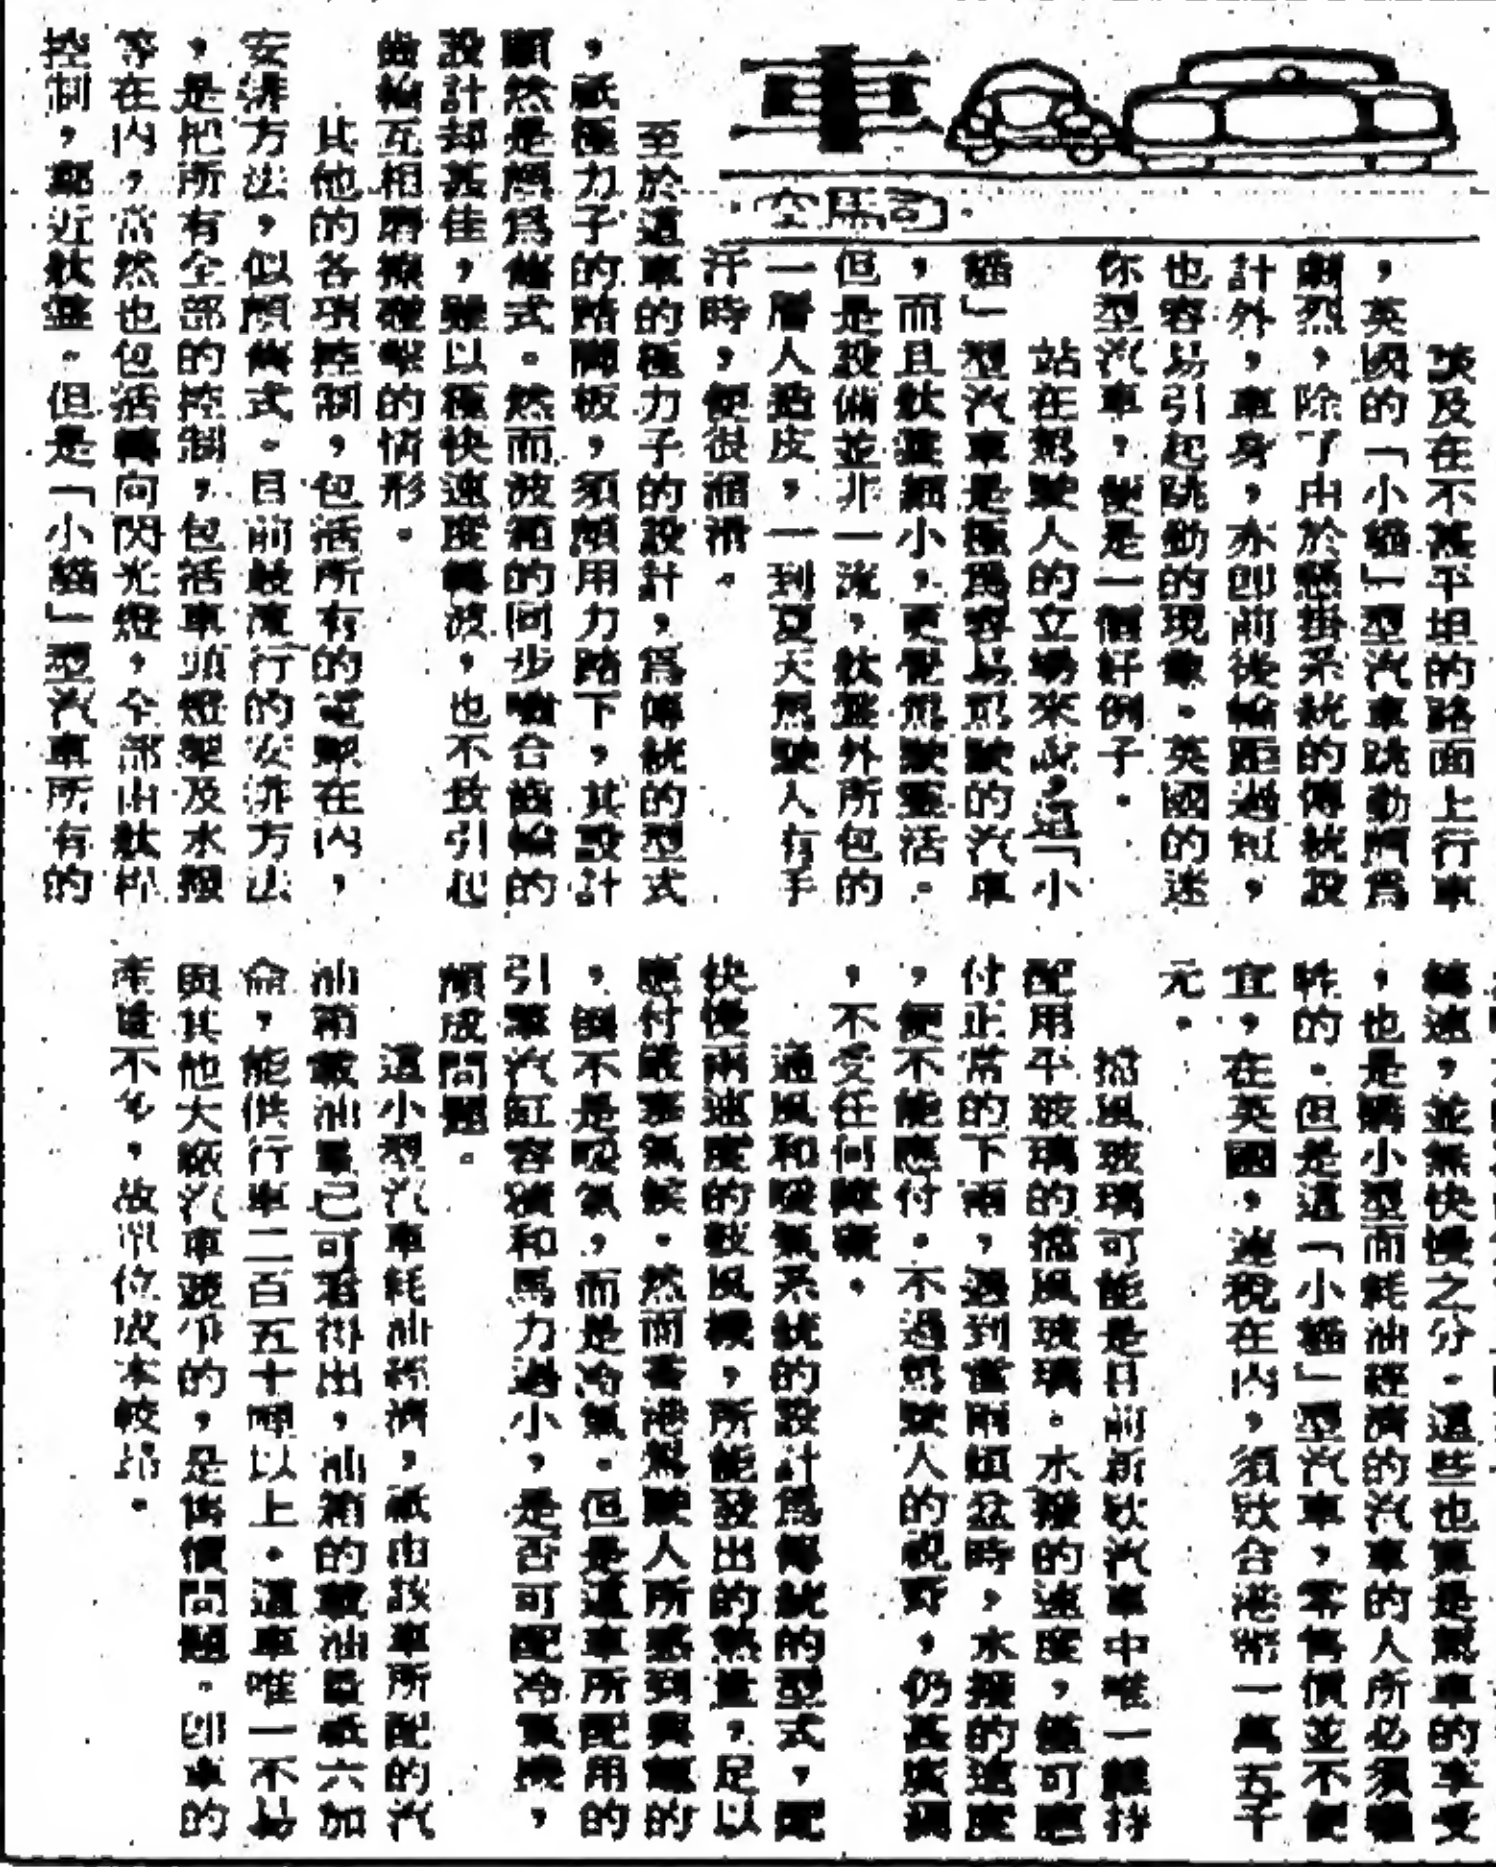 車
司馬空
談及在不甚平坦的路面上行車
，英國的「小貓」型汽車跳動頗爲
劇烈，除了由於懸掛系統的傳統設
計外，車身，亦卽前後輪距過短，
也容易引起跳動的現象。英國的迷
你型汽車，便是一個好例子。
站在駕駛人的立場來說，這「小
貓」型汽車是極爲容易駕駛的汽車
，而且軚盤細小，更覺駕駛靈活。
但是設備並非一流，軚盤外所包的
一層人造皮，一到夏天駕駛人有手
汗時，便很溜滑。
至於這車的極力子的設計，爲傳統的型式
，祇極力子的踏脚板，須頗用力踏下，其設計
顯然是頗爲舊式。然而波箱的同步嚙合齒輪的
設計却甚佳，雖以極快速度轉波，也不致引起
齒輪互相磨擦碰擊的情形。
其他的各項控制，包括所有的電掣在內，
安排方法，似頗舊式。目前最流行的安排方法
，是把所有全部的控制，包括車頭燈掣及水撥
等在內，當然也包括轉向閃光燈，全部由軚桿
控制，鄰近軚盤。但是「小貓」型汽車所有的
轉速，並無快慢之分。這些也算是駕車的享受
，也是購小型而耗油經濟的汽車的人所必須犧
牲的。但是這「小貓」型汽車，零售價並不便
宜，在英國，連稅在內，須欵合港幣一萬五千
元。
擋風玻璃可能是目前新欵汽車中唯一維持
配用平玻璃的擋風玻璃。水撥的速度，僅可應
付正常的下雨，遇到雷雨傾盆時，水撥的速度
，便不能應付。不過駕駛人的視野，仍甚廣濶
，不受任何障礙。
通風和暖氣系統的設計爲傳統的型式，配
快慢兩速度的鼓風機，所能發出的熱量，足以
應付嚴寒氣候。然而香港駕駛人所感到興趣的
，倒不是暖氣，而是冷氣。但是這車所配用的
引擎汽缸容積和馬力過小，是否可配冷氣機，
頗成問題。
這小型汽車耗油經濟，祇由該車所配的汽
油箱載油量已可看得出，油箱的載油量祇六加
侖，能供行車二百五十哩以上。這車唯一不易
與其他大廠汽車競爭的，是售價問題。卽車的
產量不多，故單位成本較昂。